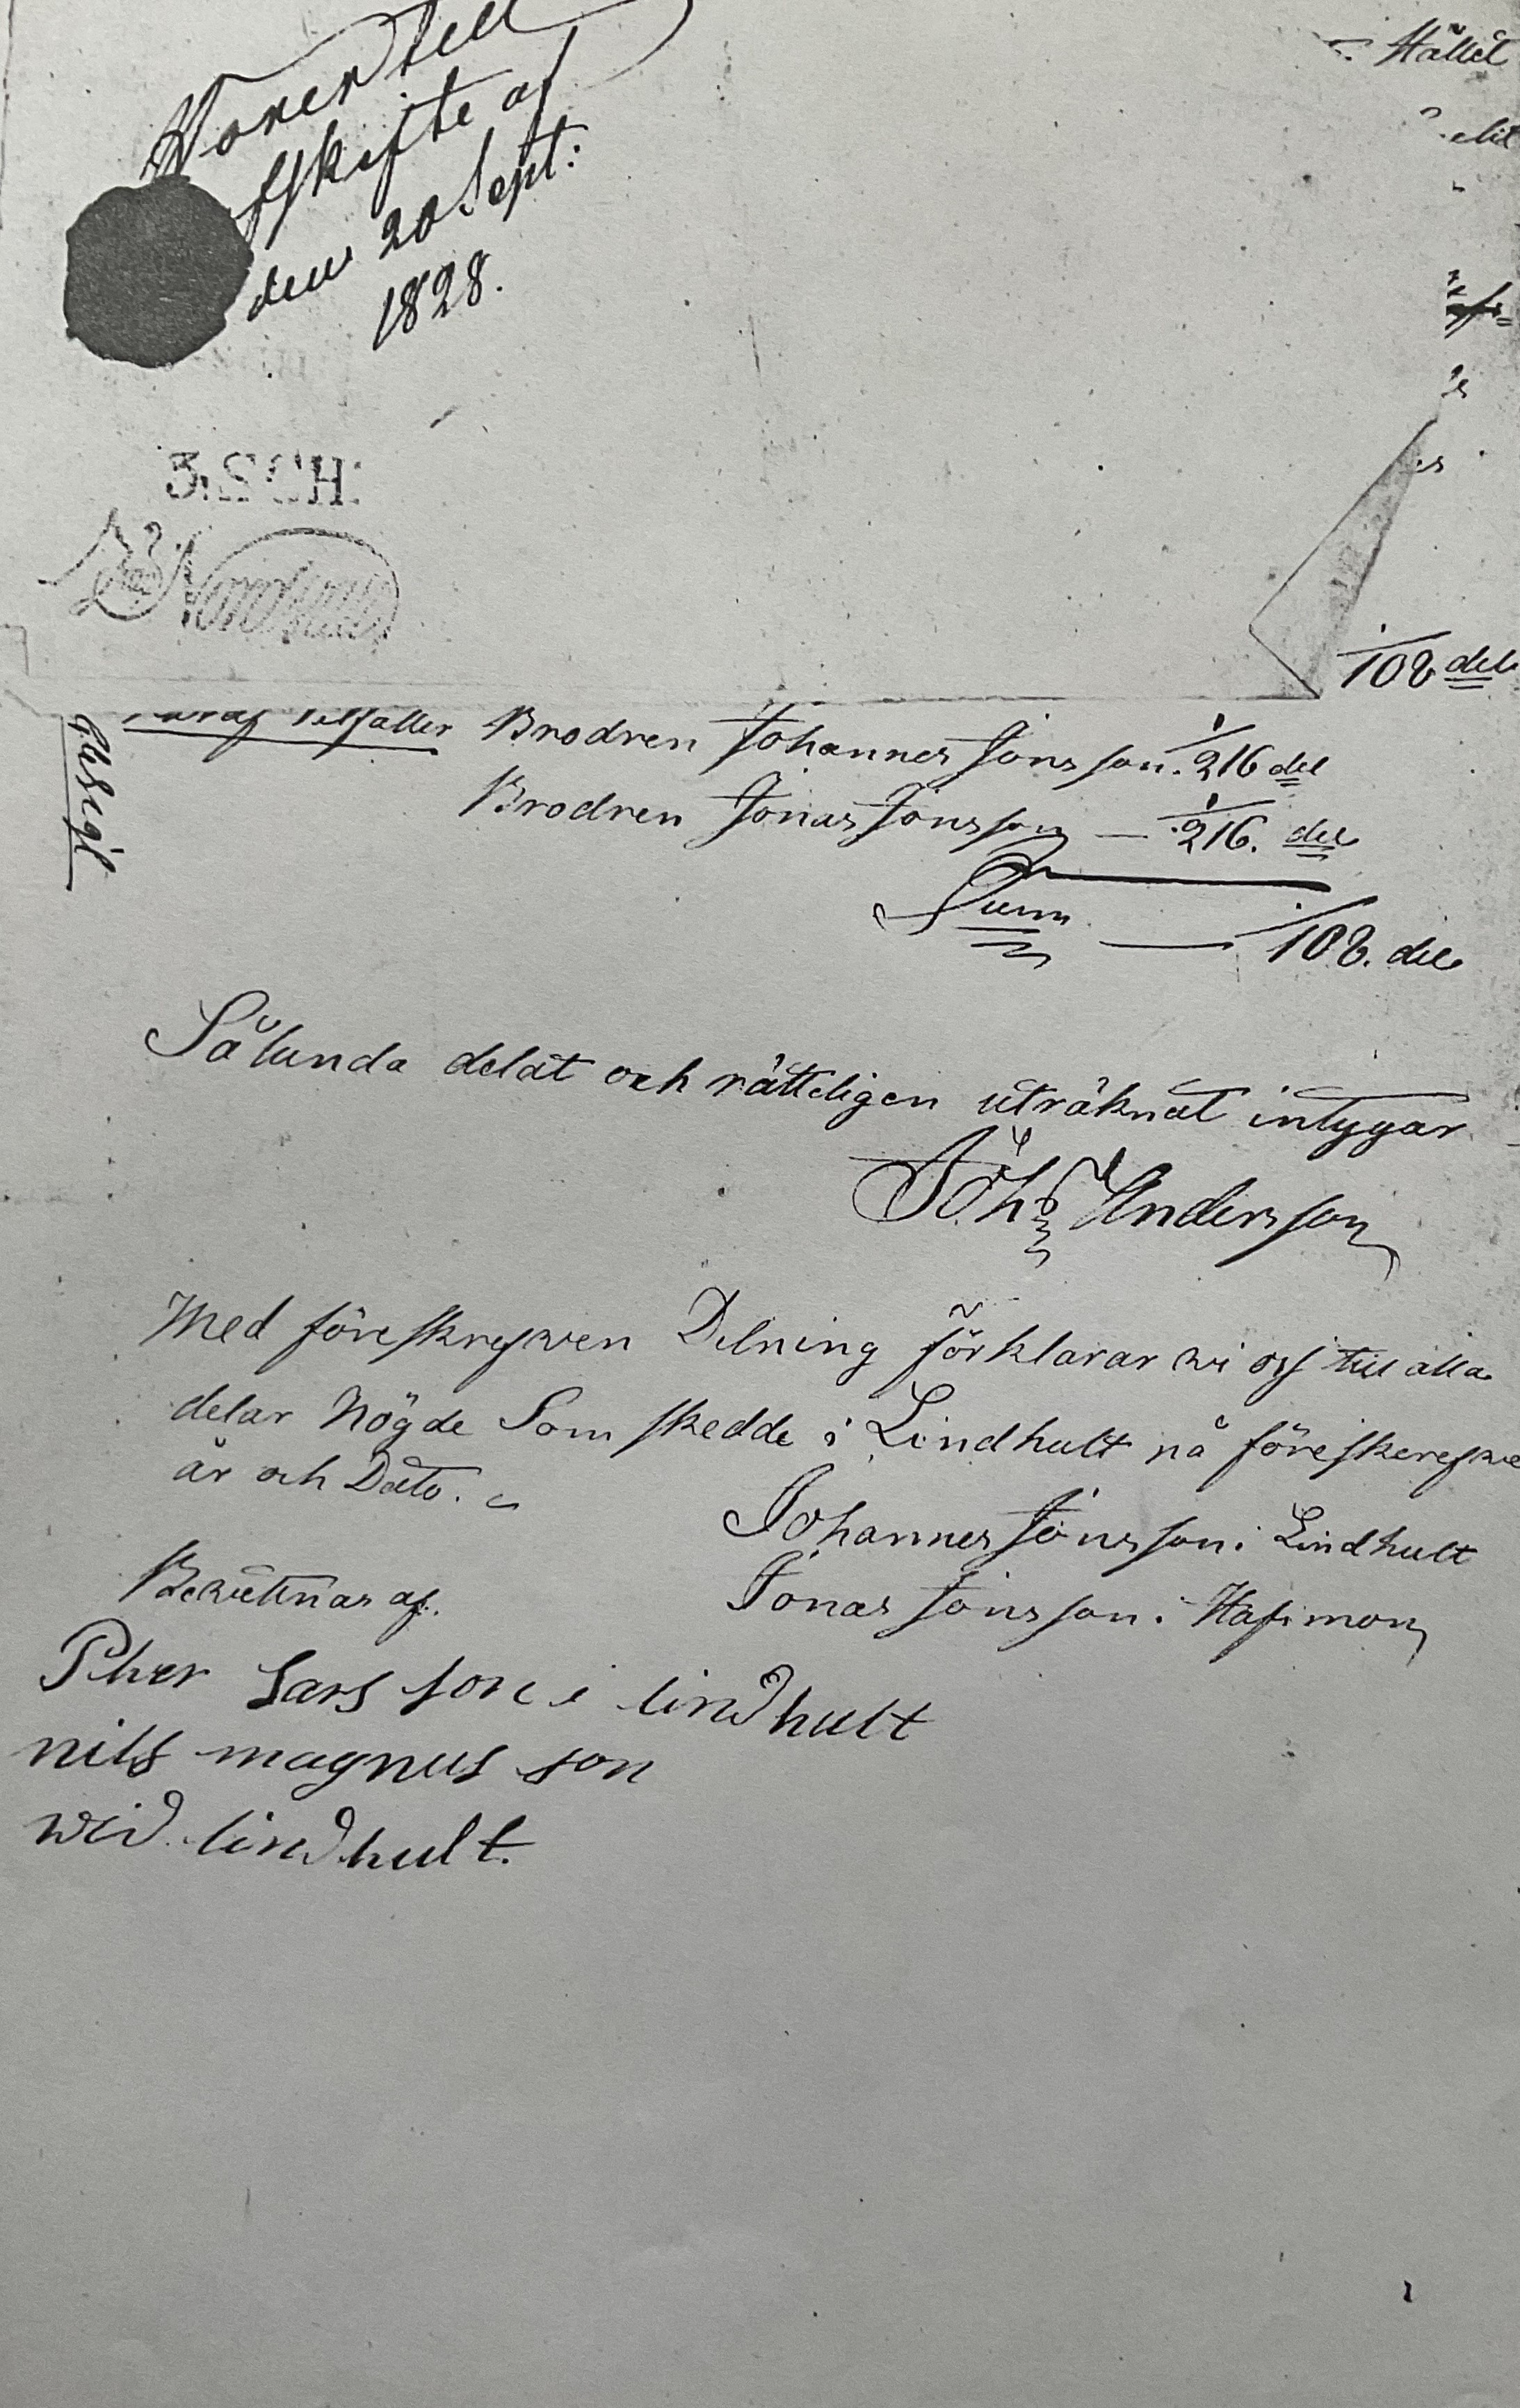 Hörer till
afskifte af
den 20 Sept:
1828.
Hället
3. S C H:
1/108 del
Häraf tillfaller Brodren Johannes Jonsson. 1/216 del
Brodren Jonas Jonsson — 1/216. del
Sum — 1/108. del
Sålunda delat och rätteligen uträknat intygar
Joh:s Anderson
Med föreskrefwen Delning förklarar wi oss till alla
delar Nögde Som skedde i Lindhult på föreskrefwe
år och Dato.
Johannes Jonsson i Lindhult
Jonas Jonsson i Hafimon
Bewittnas af.
Pher Lars son i lindhult
nils magnus son
wid lindhult.